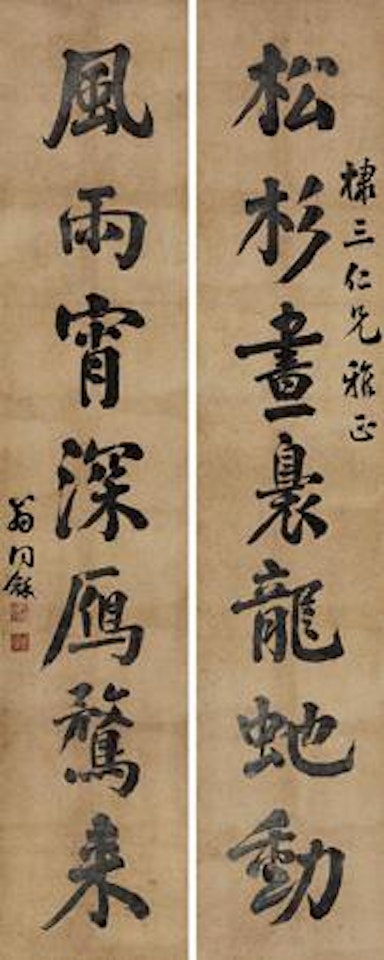 棣三仁兄雅正
松杉晝裊龍蛇動
風雨宵深鴈鶩来
翁同龢